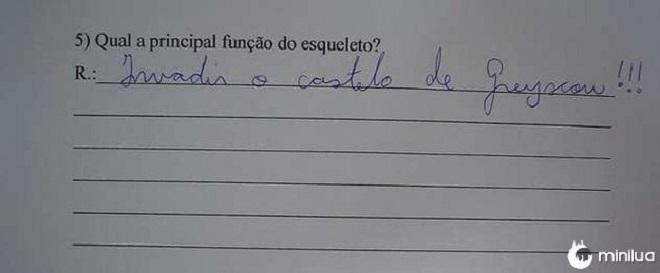 5) Qual a principal função do esqueleto?
R.: Invadir o castelo de Greyscow!!!
minilua